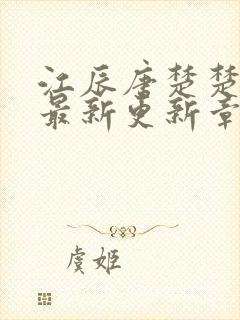 江辰唐楚楚
最新更新章
虞姬